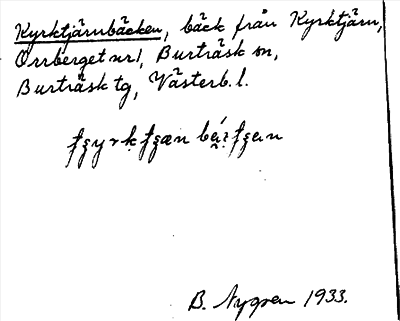 Kyrktjärnbäcken, bäck från Kyrktjärn,
Orrberget nr 1, Burträsk sn,
Burträsk tg, Västerb. l.
B. Nygren 1933.